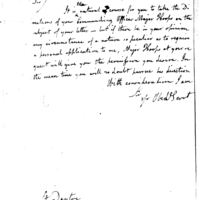 Sir/
It is a natural course for you to take the di-
rections of your Commanding Officer Major Thorps on the
subject of your letter — but if there be in your opinion
any circumstance of a nature so peculiar as to require
a personal application to me, Major Thorps at your re-
quest will give you the permission you desire. In
the mean time you will no doubt pursue his direction
With consideration I am
Sir yr Obedt Servt